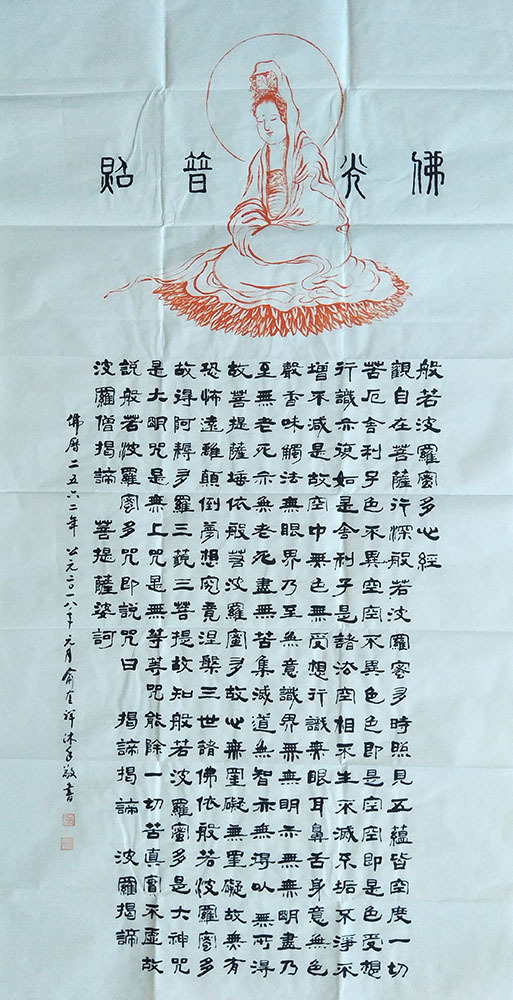 佛光普照
般若波羅蜜多心經
觀自在菩薩行深般若波羅蜜多時照見五蘊皆空度一切
苦厄舍利子色不異空空不異色色即是空空即是色受想
行識亦復如是舍利子是諸法空相不生不滅不垢不淨不
增不減是故空中無色無受想行識無眼耳鼻舌身意無色
聲香味觸法無眼界乃至無意識界無無明亦無無明盡乃
至無老死亦無老死盡無苦集滅道無智亦無得以無所得
故菩提薩埵依般若波羅蜜多故心無罣礙無罣礙故無有
恐怖遠離顛倒夢想究竟涅槃三世諸佛依般若波羅蜜多
故得阿耨多羅三藐三菩提故知般若波羅蜜多是大神咒
是大明咒是無上咒是無等等咒能除一切苦真實不虛故
說般若波羅蜜多咒即說咒曰 揭諦揭諦 波羅揭諦
波羅僧揭諦 菩提薩婆訶
佛曆二五六二年 公元二〇一八年元月俞祥沐手敬書